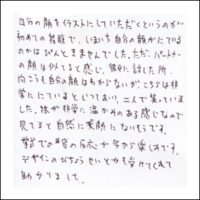 自分の顔をイラストにしていただくというのが
初めての経験で、いまいち自分の顔がにている
のかはぴんときませんでした。ただ、パートナー
の顔は似てると感じ、彼に話した所、
向こうも自分の顔はわからないが、こちらは非
常ににていると言っており、二人で笑っていま
した。絵が非常に温かみのある感じなので
見てると自然に笑顔になりそうです。
での皆の反応が今から楽しみです。
デザインのびちょうせいとかも受けてくれて
助かりました。